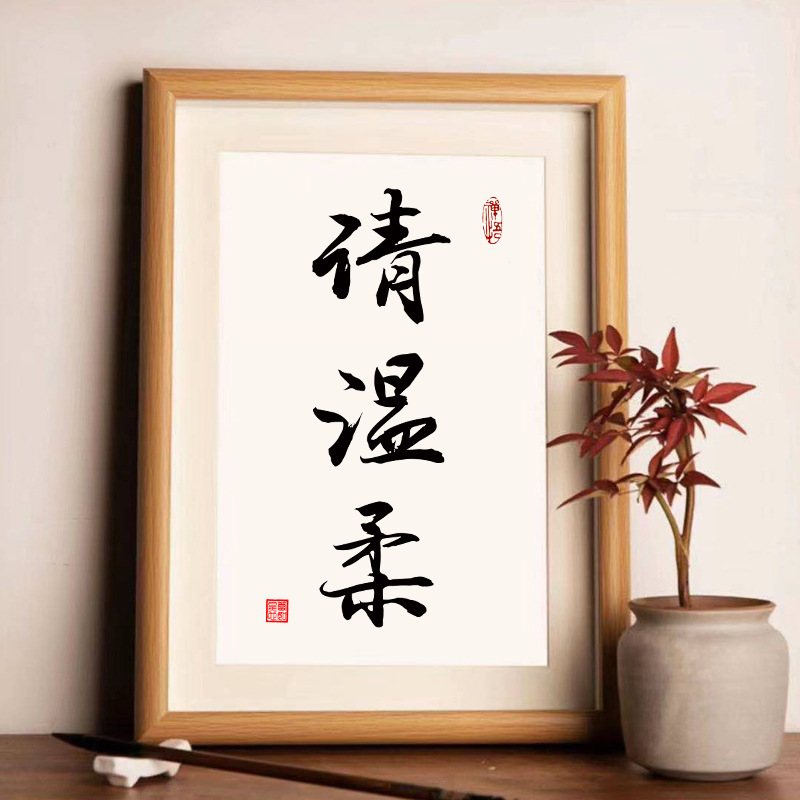 请温柔